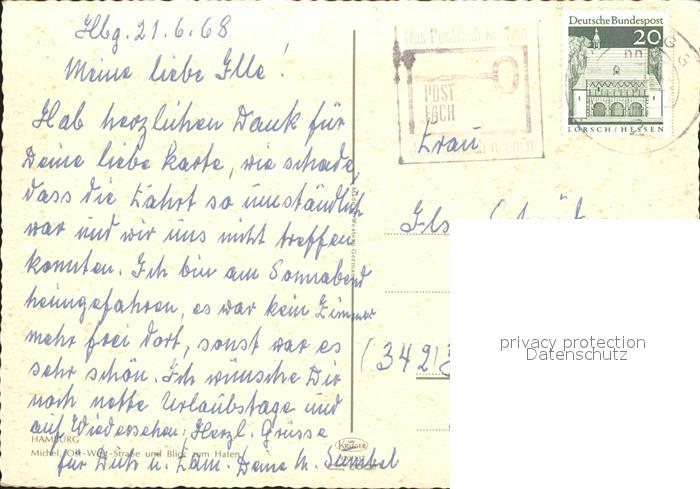 Hbg. 21.6.68
Meine liebe Ille!
Hab herzlichen Dank für
Deine liebe Karte, wie schade,
dass die Fahrt so umständlich
war und wir uns nicht treffen
konnten. Ich bin am Sonnabend
heimgefahren, es war kein Zimmer
mehr frei dort, sonst war es
sehr schön. Ich wünsche Dir
noch nette Urlaubstage und
auf Wiedersehen. Herzl. Grüsse
für Dich u. Fam. Deine M.
HAMBURG
Michel, Ost-West-Straße und Blick zum Hafen
KRÜGER
Made in Western Germany
Das Postfach
POST
FACH
Deutsche Bundespost
20
LORSCH/HESSEN
Frau
(342)
privacy protection
Datenschutz